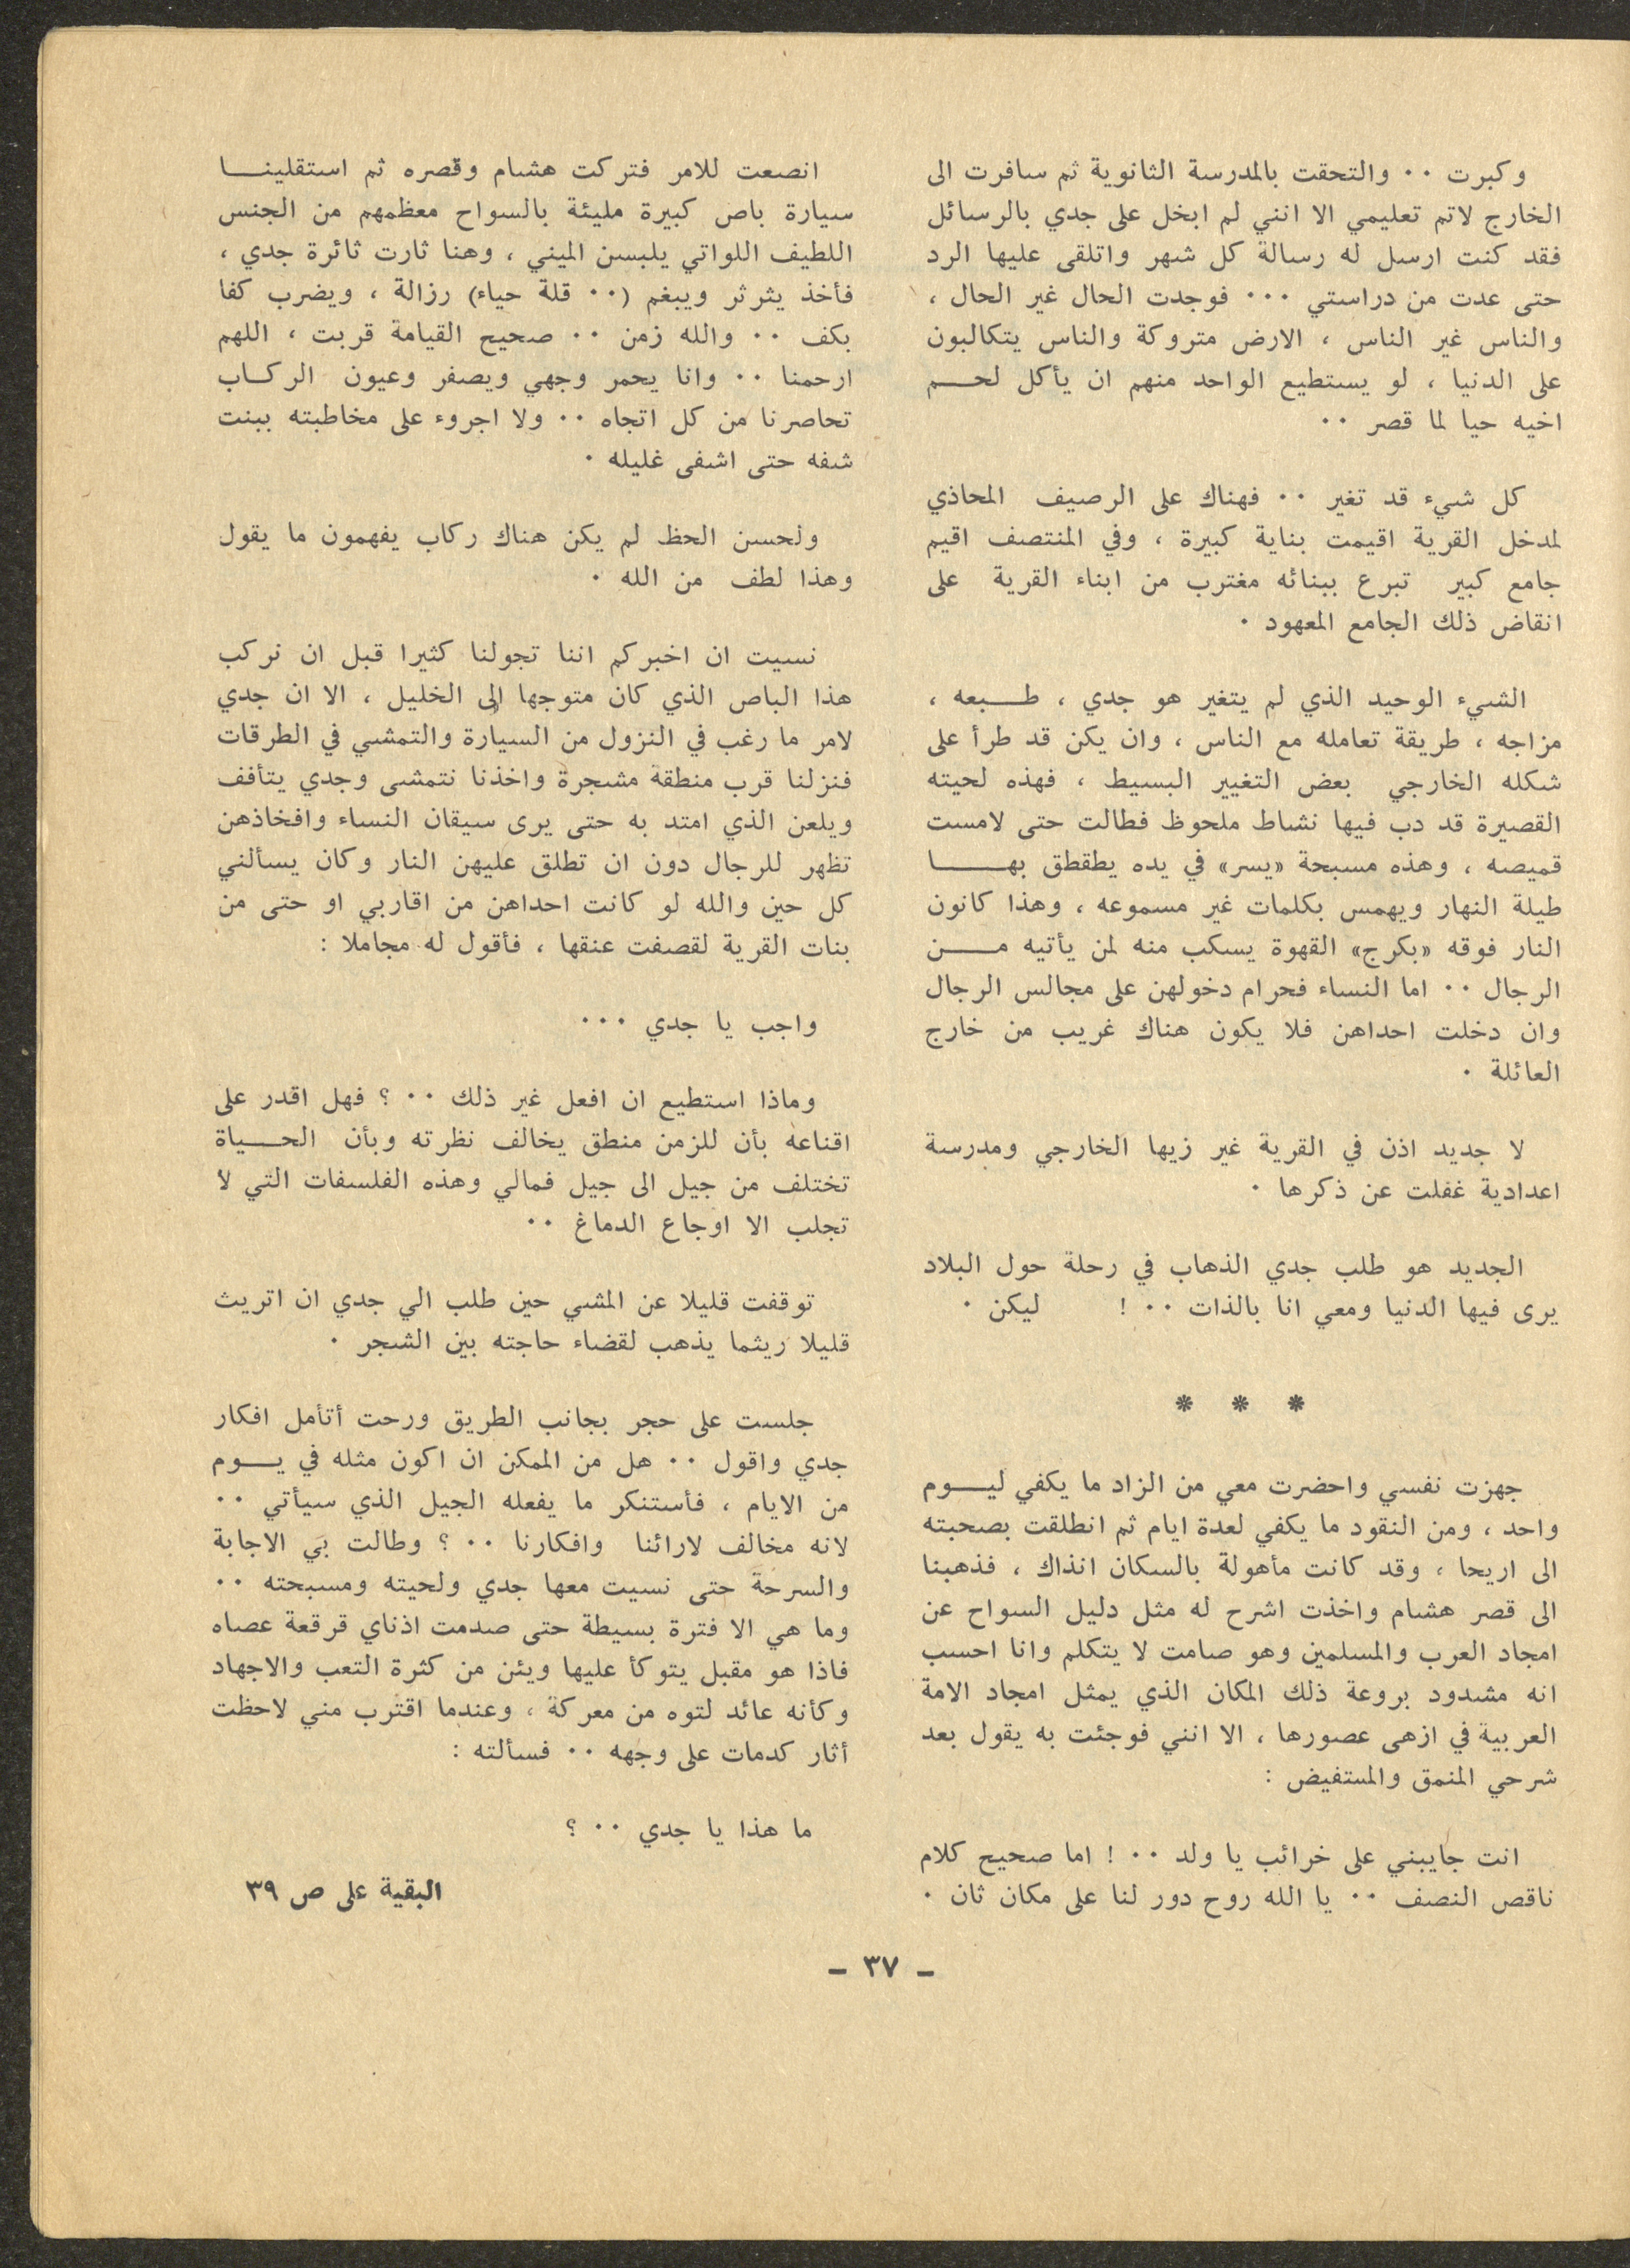 وكبرت ٠٠ والتحقت بالمدرسة الثانوية ثم سافرت الى
الخارج لاتم تعليمي الا انني لم ابخل على جدي بالرسائل
فقد كنت ارسل له رسالة كل شهر واتلقى عليها الرد
حتى عدت من دراستي ٠٠٠ فوجدت الحال غير الحال ،
والناس غير الناس ، الارض متروكة والناس يتكالبون
على الدنيا ، لو يستطيع الواحد منهم ان يأكل لحم
اخيه حيا لما قصر ٠٠
كل شيء قد تغير ٠٠ فهناك على الرصيف المحاذي
لمدخل القرية اقيمت بناية كبيرة ، وفي المنتصف اقيم
جامع كبير تبرع ببنائه مغترب من ابناء القرية على
انقاض ذلك الجامع المعهود ٠
الشيء الوحيد الذي لم يتغير هو جدي ، طبعه ،
مزاجه ، طريقة تعامله مع الناس ، وان يكن قد طرأ على
شكله الخارجي بعض التغيير البسيط ، فهذه لحيته
القصيرة قد دب فيها نشاط ملحوظ فطالت حتى لامست
قميصه ، وهذه مسبحة «يسر» في يده يطقطق بها
طيلة النهار ويهمس بكلمات غير مسموعه ، وهذا كانون
النار فوقه «بكرج» القهوة يسكب منه لمن يأتيه من
الرجال ٠٠ اما النساء فحرام دخولهن على مجالس الرجال
وان دخلت احداهن فلا يكون هناك غريب من خارج
العائلة ٠
لا جديد اذن في القرية غير زيها الخارجي ومدرسة
اعدادية غفلت عن ذكرها ٠
الجديد هو طلب جدي الذهاب في رحلة حول البلاد
يرى فيها الدنيا ومعي انا بالذات ٠٠ ! ليكن ٠
* * *
جهزت نفسي واحضرت معي من الزاد ما يكفي ليوم
واحد ، ومن النقود ما يكفي لعدة ايام ثم انطلقت بصحبته
الى اريحا ، وقد كانت مأهولة بالسكان انذاك ، فذهبنا
الى قصر هشام واخذت اشرح له مثل دليل السواح عن
امجاد العرب والمسلمين وهو صامت لا يتكلم وانا احسب
انه مشدود بروعة ذلك المكان الذي يمثل امجاد الامة
العربية في ازهى عصورها ، الا انني فوجئت به يقول بعد
شرحي المنمق والمستفيض :
انت جايبني على خرائب يا ولد ٠٠ ! اما صحيح كلام
ناقص النصف ٠٠ يا الله روح دور لنا على مكان ثان ٠
انصعت للامر فتركت هشام وقصره ثم استقلينا
سيارة باص كبيرة مليئة بالسواح معظمهم من الجنس
اللطيف اللواتي يلبسن الميني ، وهنا ثارت ثائرة جدي ،
فأخذ يثرثر ويبغم (٠٠ قلة حياء) رزالة ، ويضرب كفا
بكف ٠٠ والله زمن ٠٠ صحيح القيامة قربت ، اللهم
ارحمنا ٠٠ وانا يحمر وجهي ويصفر وعيون الركاب
تحاصرنا من كل اتجاه ٠٠ ولا اجروء على مخاطبته ببنت
شفه حتى اشفى غليله ٠
ولحسن الحظ لم يكن هناك ركاب يفهمون ما يقول
وهذا لطف من الله ٠
نسيت ان اخبركم اننا تجولنا كثيرا قبل ان نركب
هذا الباص الذي كان متوجها الى الخليل ، الا ان جدي
لامر ما رغب في النزول من السيارة والتمشي في الطرقات
فنزلنا قرب منطقة مشجرة واخذنا نتمشى وجدي يتأفف
ويلعن الذي امتد به حتى يرى سيقان النساء وافخاذهن
تظهر للرجال دون ان تطلق عليهن النار وكان يسألني
كل حين والله لو كانت احداهن من اقاربي او حتى من
بنات القرية لقصفت عنقها ، فأقول له مجاملا :
واجب يا جدي ٠٠٠
وماذا استطيع ان افعل غير ذلك ٠٠ ؟ فهل اقدر على
اقناعه بأن للزمن منطق يخالف نظرته وبأن الحياة
تختلف من جيل الى جيل فمالي وهذه الفلسفات التي لا
تجلب الا اوجاع الدماغ ٠٠
توقفت قليلا عن المشي حين طلب الي جدي ان اتريث
قليلا ريثما يذهب لقضاء حاجته بين الشجر ٠
جلست على حجر بجانب الطريق ورحت أتأمل افكار
جدي واقول ٠٠ هل من الممكن ان اكون مثله في يوم
من الايام ، فأستنكر ما يفعله الجيل الذي سيأتي ٠٠
لانه مخالف لارائنا وافكارنا ٠٠ ؟ وطالت بي الاجابة
والسرحة حتى نسيت معها جدي ولحيته ومسبحته ٠٠
وما هي الا فترة بسيطة حتى صدمت اذناي قرقعة عصاه
فاذا هو مقبل يتوكأ عليها ويئن من كثرة التعب والاجهاد
وكأنه عائد لتوه من معركة ، وعندما اقترب مني لاحظت
أثار كدمات على وجهه ٠٠ فسألته :
ما هذا يا جدي ٠٠ ؟
البقية على ص ٣٩
- ٣٧ -